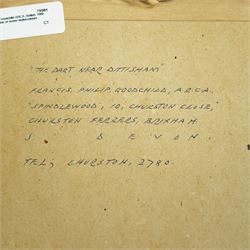 79981
CT
"THE DART NEAR DITTISHAM"
FRANCIS, PHILIP, GOODCHILD, A.R.C.A.
"SPINDLEWOOD", 10, CHURSTON CLOSE,
CHURSTON FERRERS, BRIXHAM.
S. DEVON.
TEL; CHURSTON, 2780.